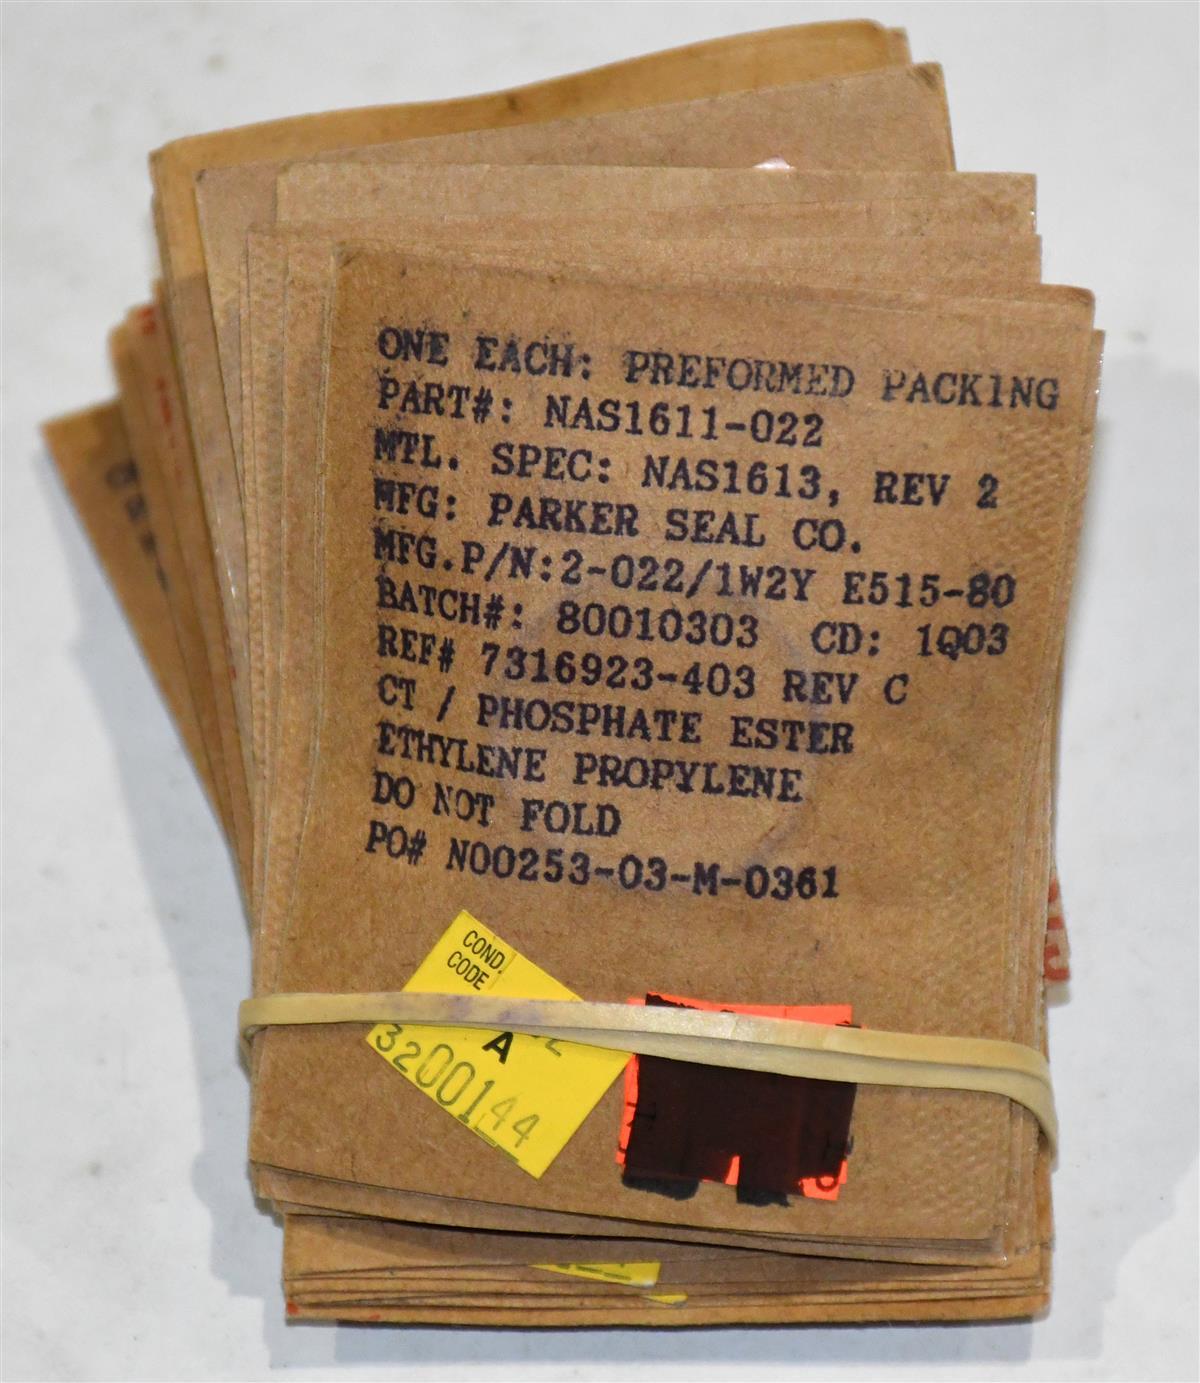 ONE EACH: PREFORMED PACKING
PART#: NAS1611-022
MTL. SPEC: NAS1613, REV 2
MFG: PARKER SEAL CO.
MFG.P/N:2-022/1W2Y E515-80
BATCH#: 80010303 CD: 1Q03
REF# 7316923-403 REV C
CT / PHOSPHATE ESTER
ETHYLENE PROPYLENE
DO NOT FOLD
PO# N00253-03-M-0361
COND.
CODE
A
3200144